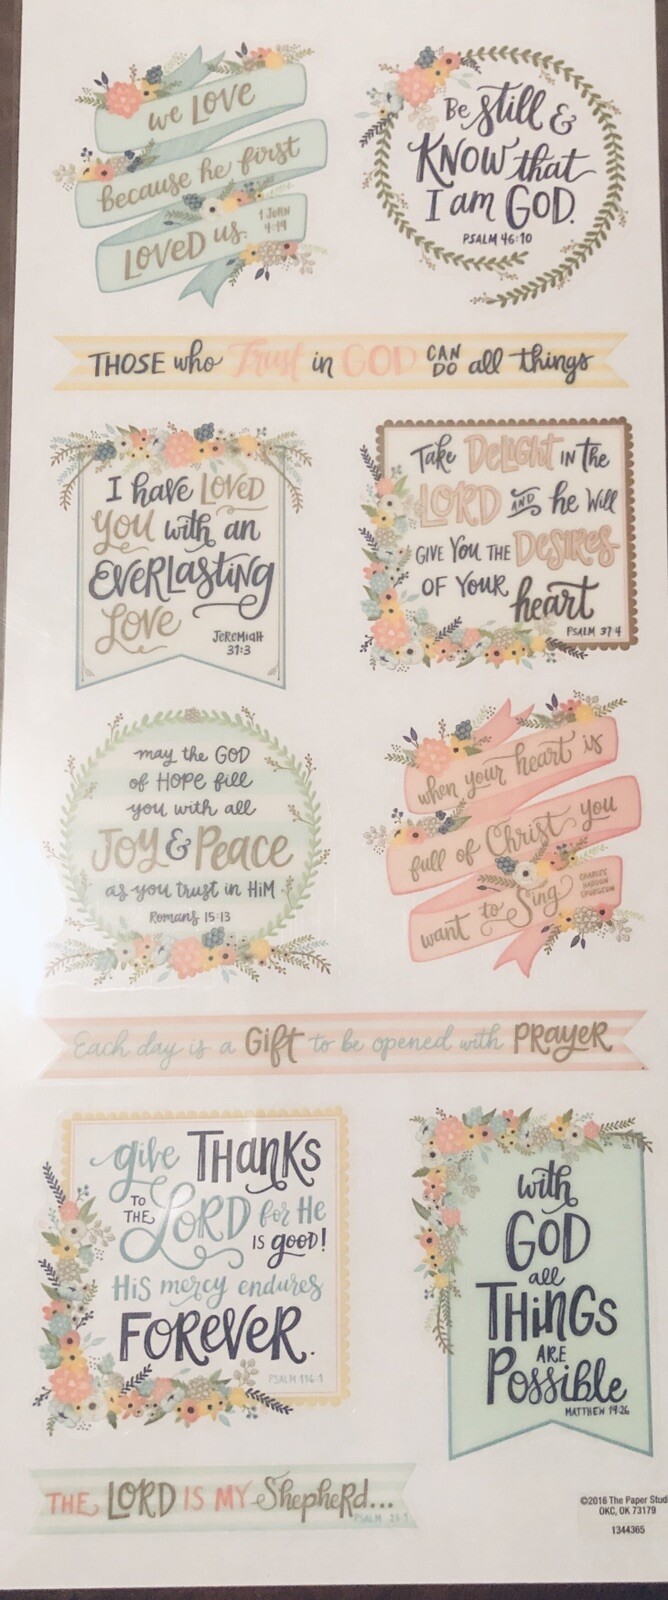 we LOVE
because he first
LOVED us.
1 JOHN
4:19
Be still &
KNOW that
I am GOD.
PSALM 46:10
THOSE who Trust in GOD CAN DO all things
I have LOVED
you with an
EVERLASTING
Love
JEREMIAH
31:3
Take DELIGHT IN the
LORD AND he will
GIVE You THE DESIRES
OF YOUR heart
PSALM 37:4
may the GOD
of HOPE fill
you with all
JOY & Peace
as you trust in HIM
Romans 15:13
when your heart is
full of Christ you
want to Sing
CHARLES
HADDON
SPURGEON
Each day is a Gift to be opened with PRAYER
give THANKS
TO THE LORD for He
IS good!
HIS mercy endures
FOREVER.
with
GOD
all
THINGS
ARE
Possible
MATTHEW 19:26
THE LORD IS MY SHEPHERD...
©2016 The Paper Studi
OKC, OK 73179
1344365